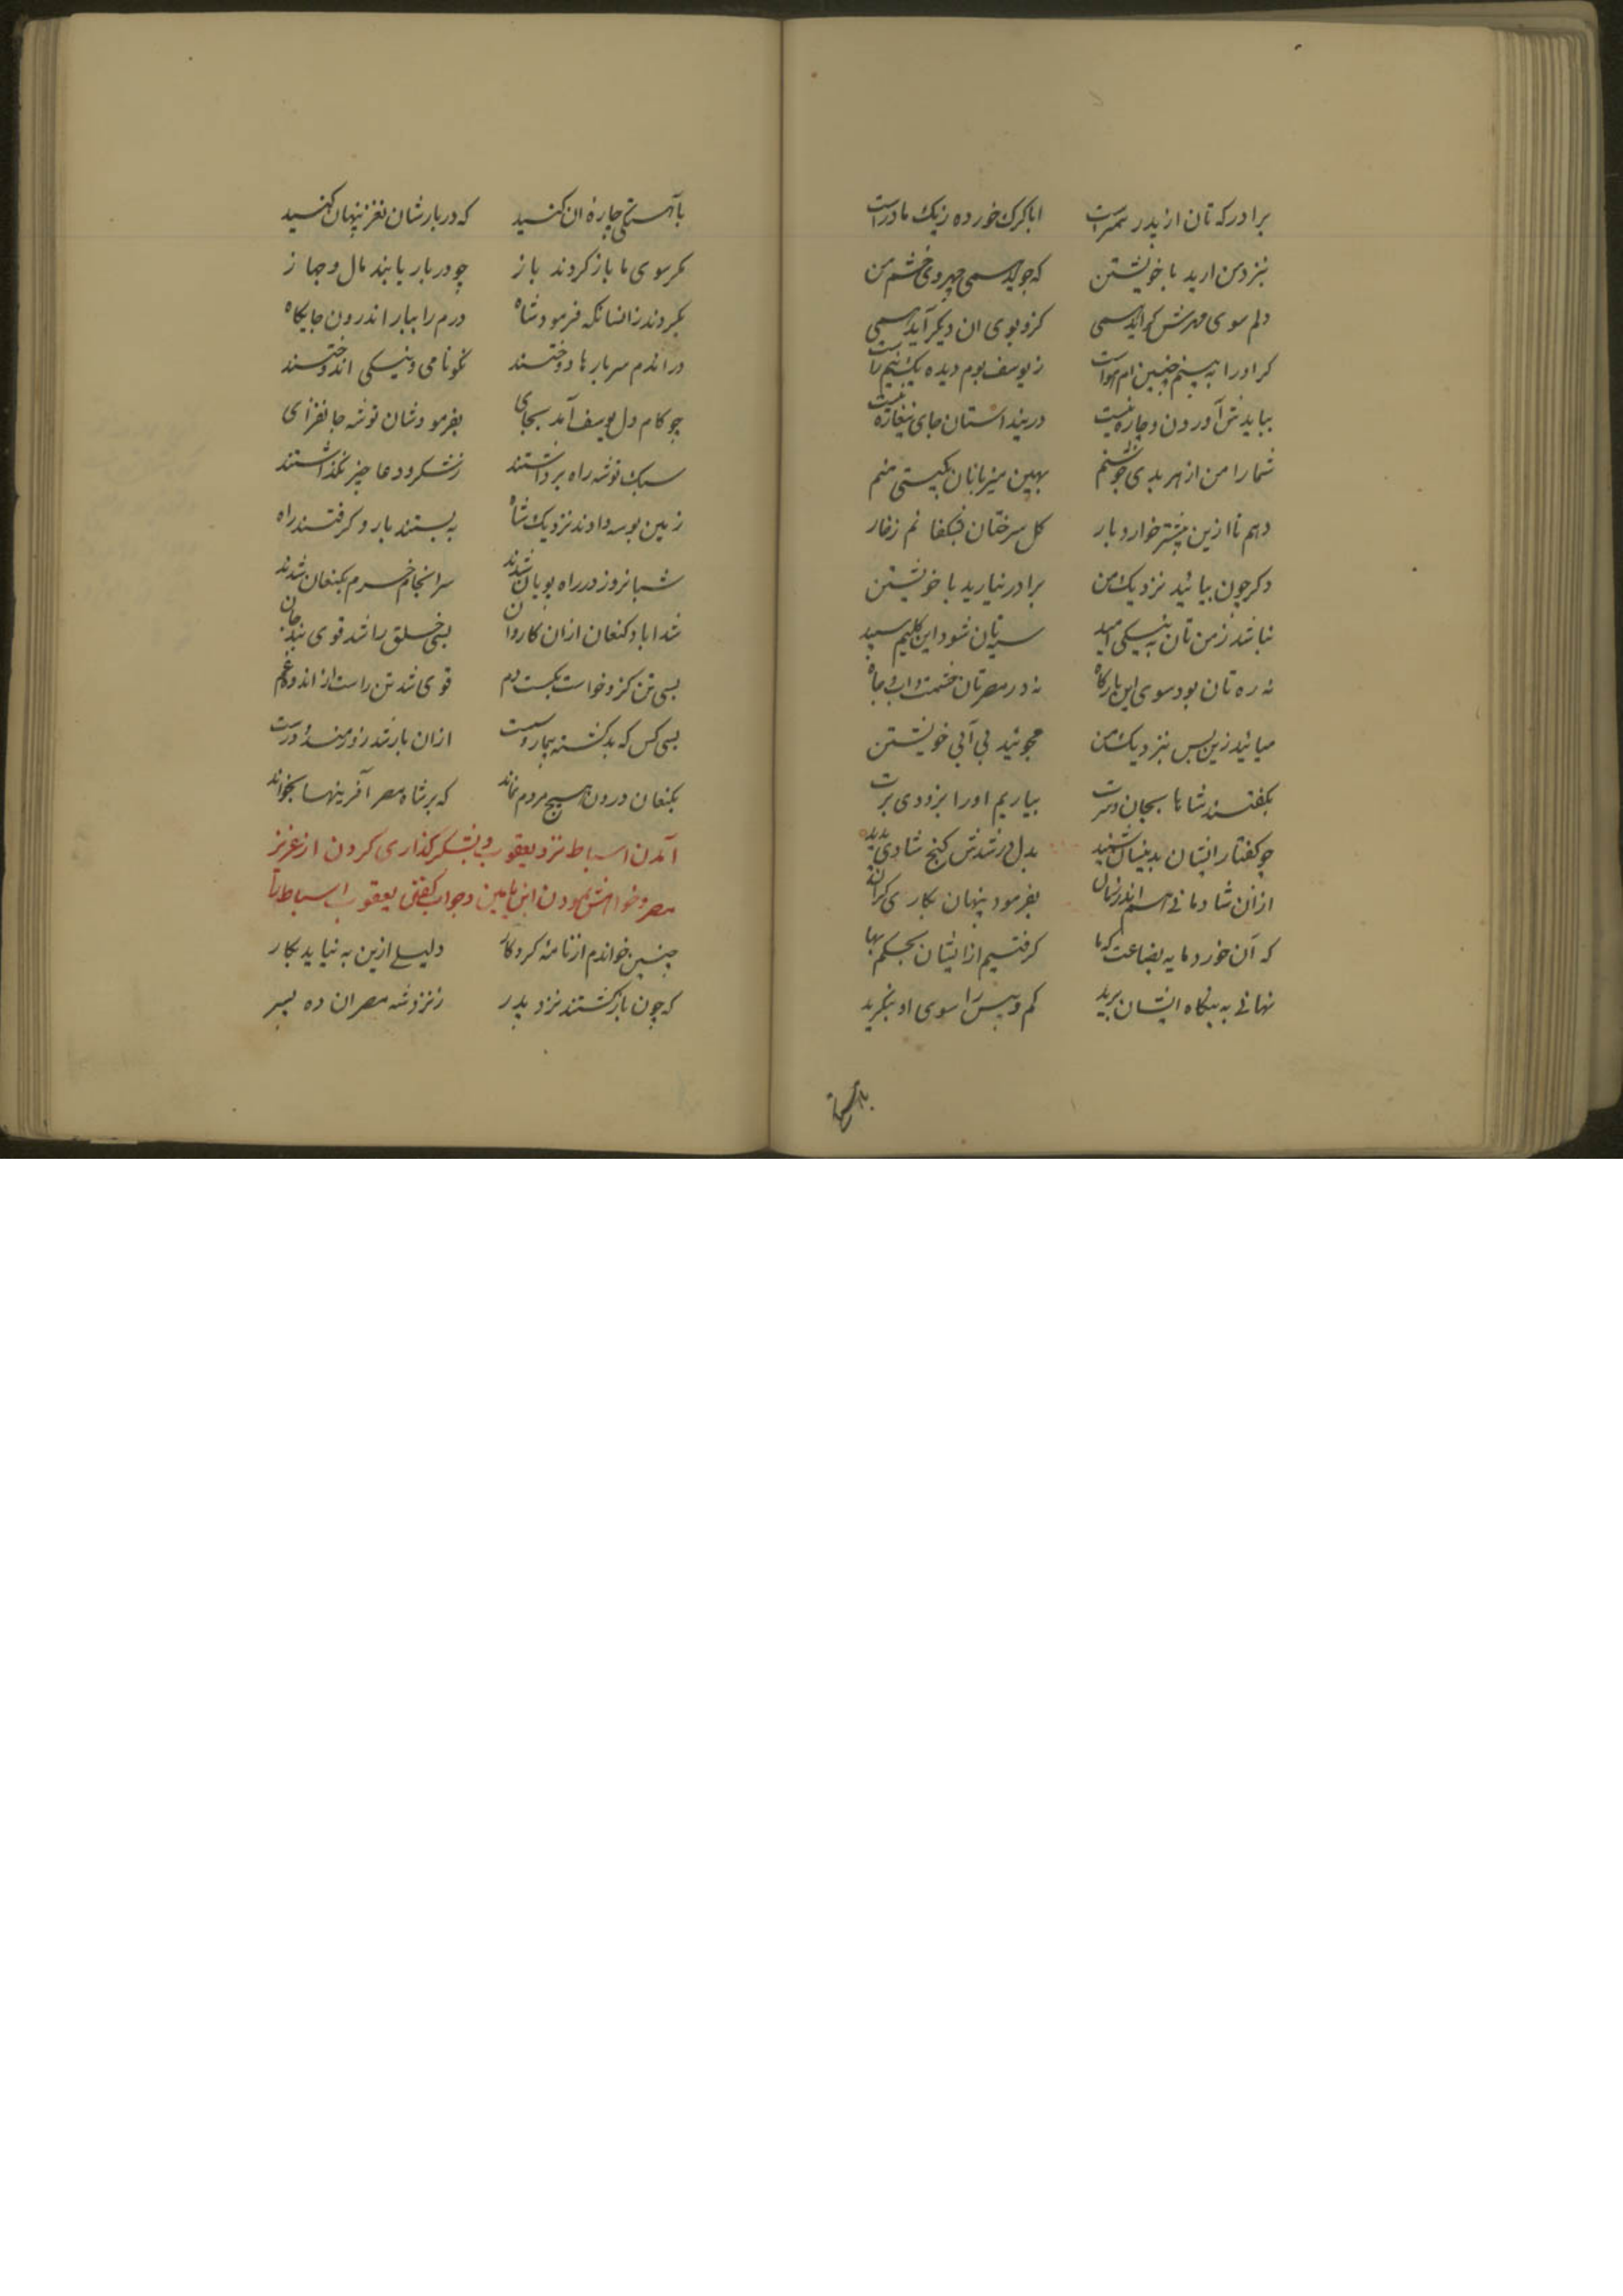 برادر که تان از پدر همسراست ابا کرک خورده ز یک مادراست
بنزد من ارید با خویشتن که جوید همی چهر وی چشم من
دلم سوی مهرش کراید همی کزو بوی ان دیکر آید همی
کر اورا به بینم چنین ام هواست ز یوسف بوم دیده یک نیم راست
بباید تن آوردن و چاره نیست درین داستان جای بیغاره نیست
شمارا من از هر بدی جوشنم بهین میزبانان بکیتی منم
دهم تا ازین بیشتر خواروبار کل سرختان بشکفانم ز خار
دکر چون بیائید نزدیک من برادر نیارید با خویشتن
نباشد ز من تان به نیکی امید سر تان شود این کلیم سپید
نه ره تان بود سوی این بارکاه نه در مصر تان حشمت و اب و جاه
میائید زین پس بنزدیک من مجوئید بی آبی خویشتن
بکفتند شاها بجان و سرت بیاریم اورا بزودی برت
چو کفتار ایشان بدینسان شنید بدل در شدش کنج شادی پدید
ازان شادمانی هم اندر زمان بفرمود پنهان بکاری کران
که آن خورد مایه بضاعت که ما کرفتیم از ایشان بحکم بها
نهانی به بنکاه ایشان برید کم و بیش را سوی او ننکرید
بآهستکی چاره ان کنید که در بارشان نغز پنهان کنید
مکر سوی ما بازکردند باز چو در بار یابند مال و جهاز
بکردند زانسانکه فرمود شاه درم را ببار اندرون جایکاه
در اندم سر بارها دوختند نکونامی و نیکی اندوختند
چو کام دل یوسف آمد بجای بفرمودشان توشه جانفزای
سبک توشه راه برداشتند ز شکر و دعا چیز نکذاشتند
زمین بوسه دادند نزدیک شاه به بستند بار و کرفتند راه
شبانروز در راه پویان شدند سرانجام خرم بکنعان شدند
شد اباد کنعان ازان کاروان بسی خلق را شد قوی بند جان
بسی تن کزو خواست بکسست دم قوی شد تن راست از اندوه و غم
بسی کس که بد کشته بیمار و سست ازان بار شد زورمند و درست
بکنعان درون هیچ مردم نماند که بر شاه مصر آفرینها نخواند
آمدن اسباط نزد یعقوب و بشکر کذاری کردن از عزیز
مصر و خواهش نمودن ابن یامین و جواب کفتن یعقوب اسباط را
چنین خواندم از نامهٔ کردکار دلیلی ازین به نیاید بکار
که چون بازکشتند نزد پدر ز نزد شه مصر ان ده پسر